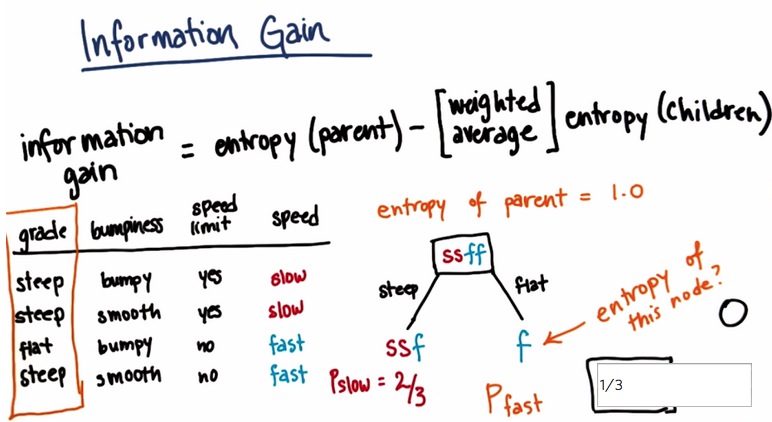 Information Gain
information gain = entropy (parent) - [weighted average] entropy (children)
entropy of parent = 1.0
grade bumpiness speed limit speed
steep bumpy yes slow
steep smooth yes slow
flat bumpy no fast
steep smooth no fast
ssff
steep flat
ssf f
entropy of this node?
0
Pslow = 2/3
Pfast
1/3